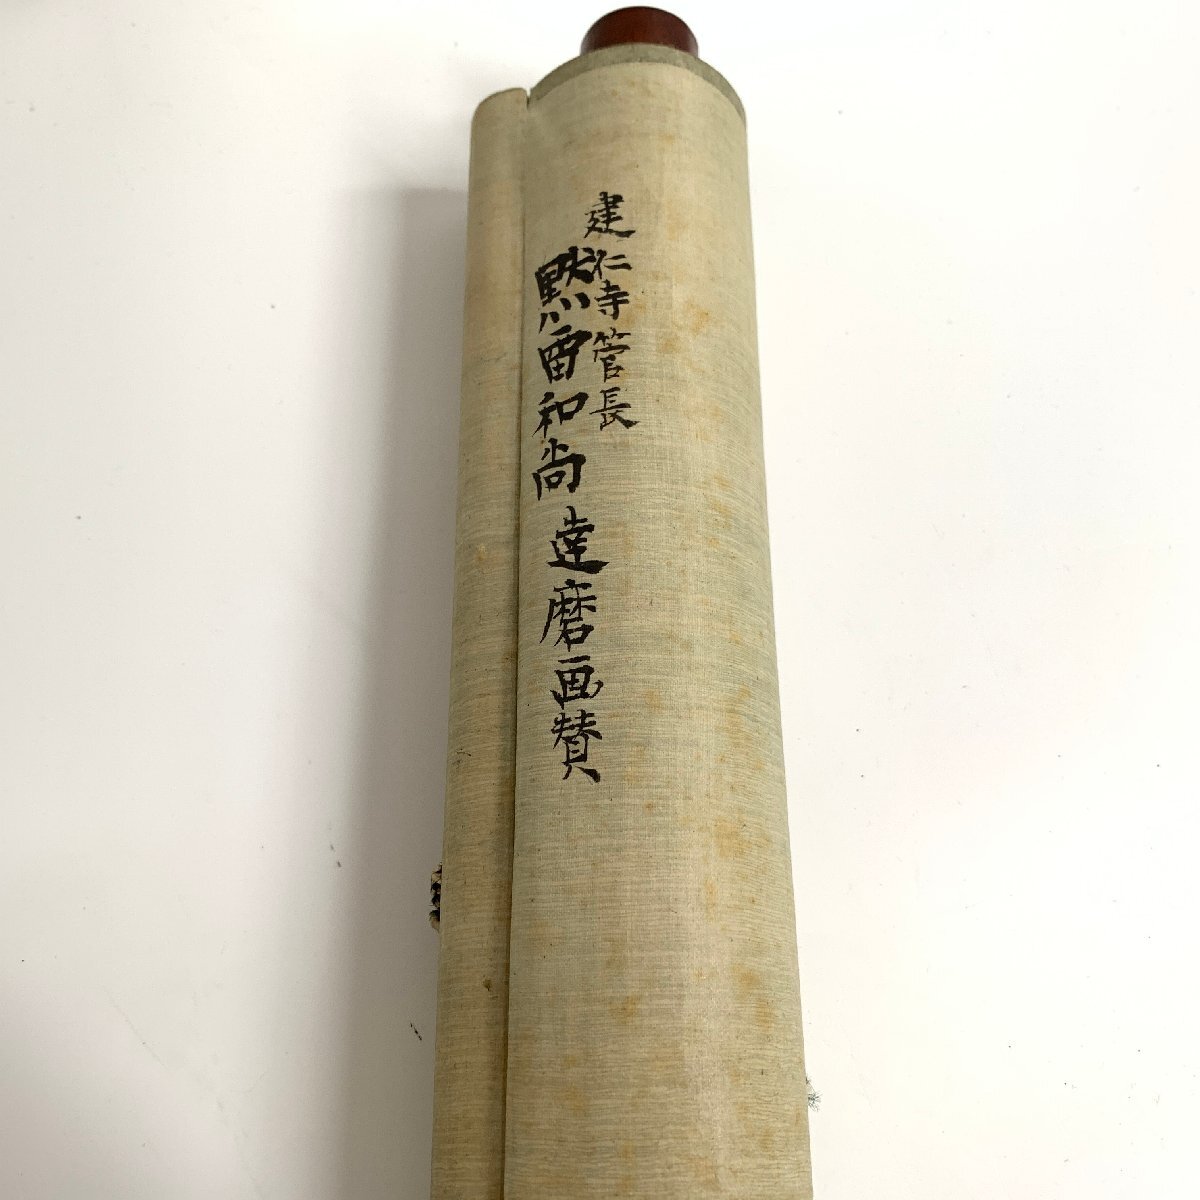 建仁寺管長
黙雷和尚達磨画賛